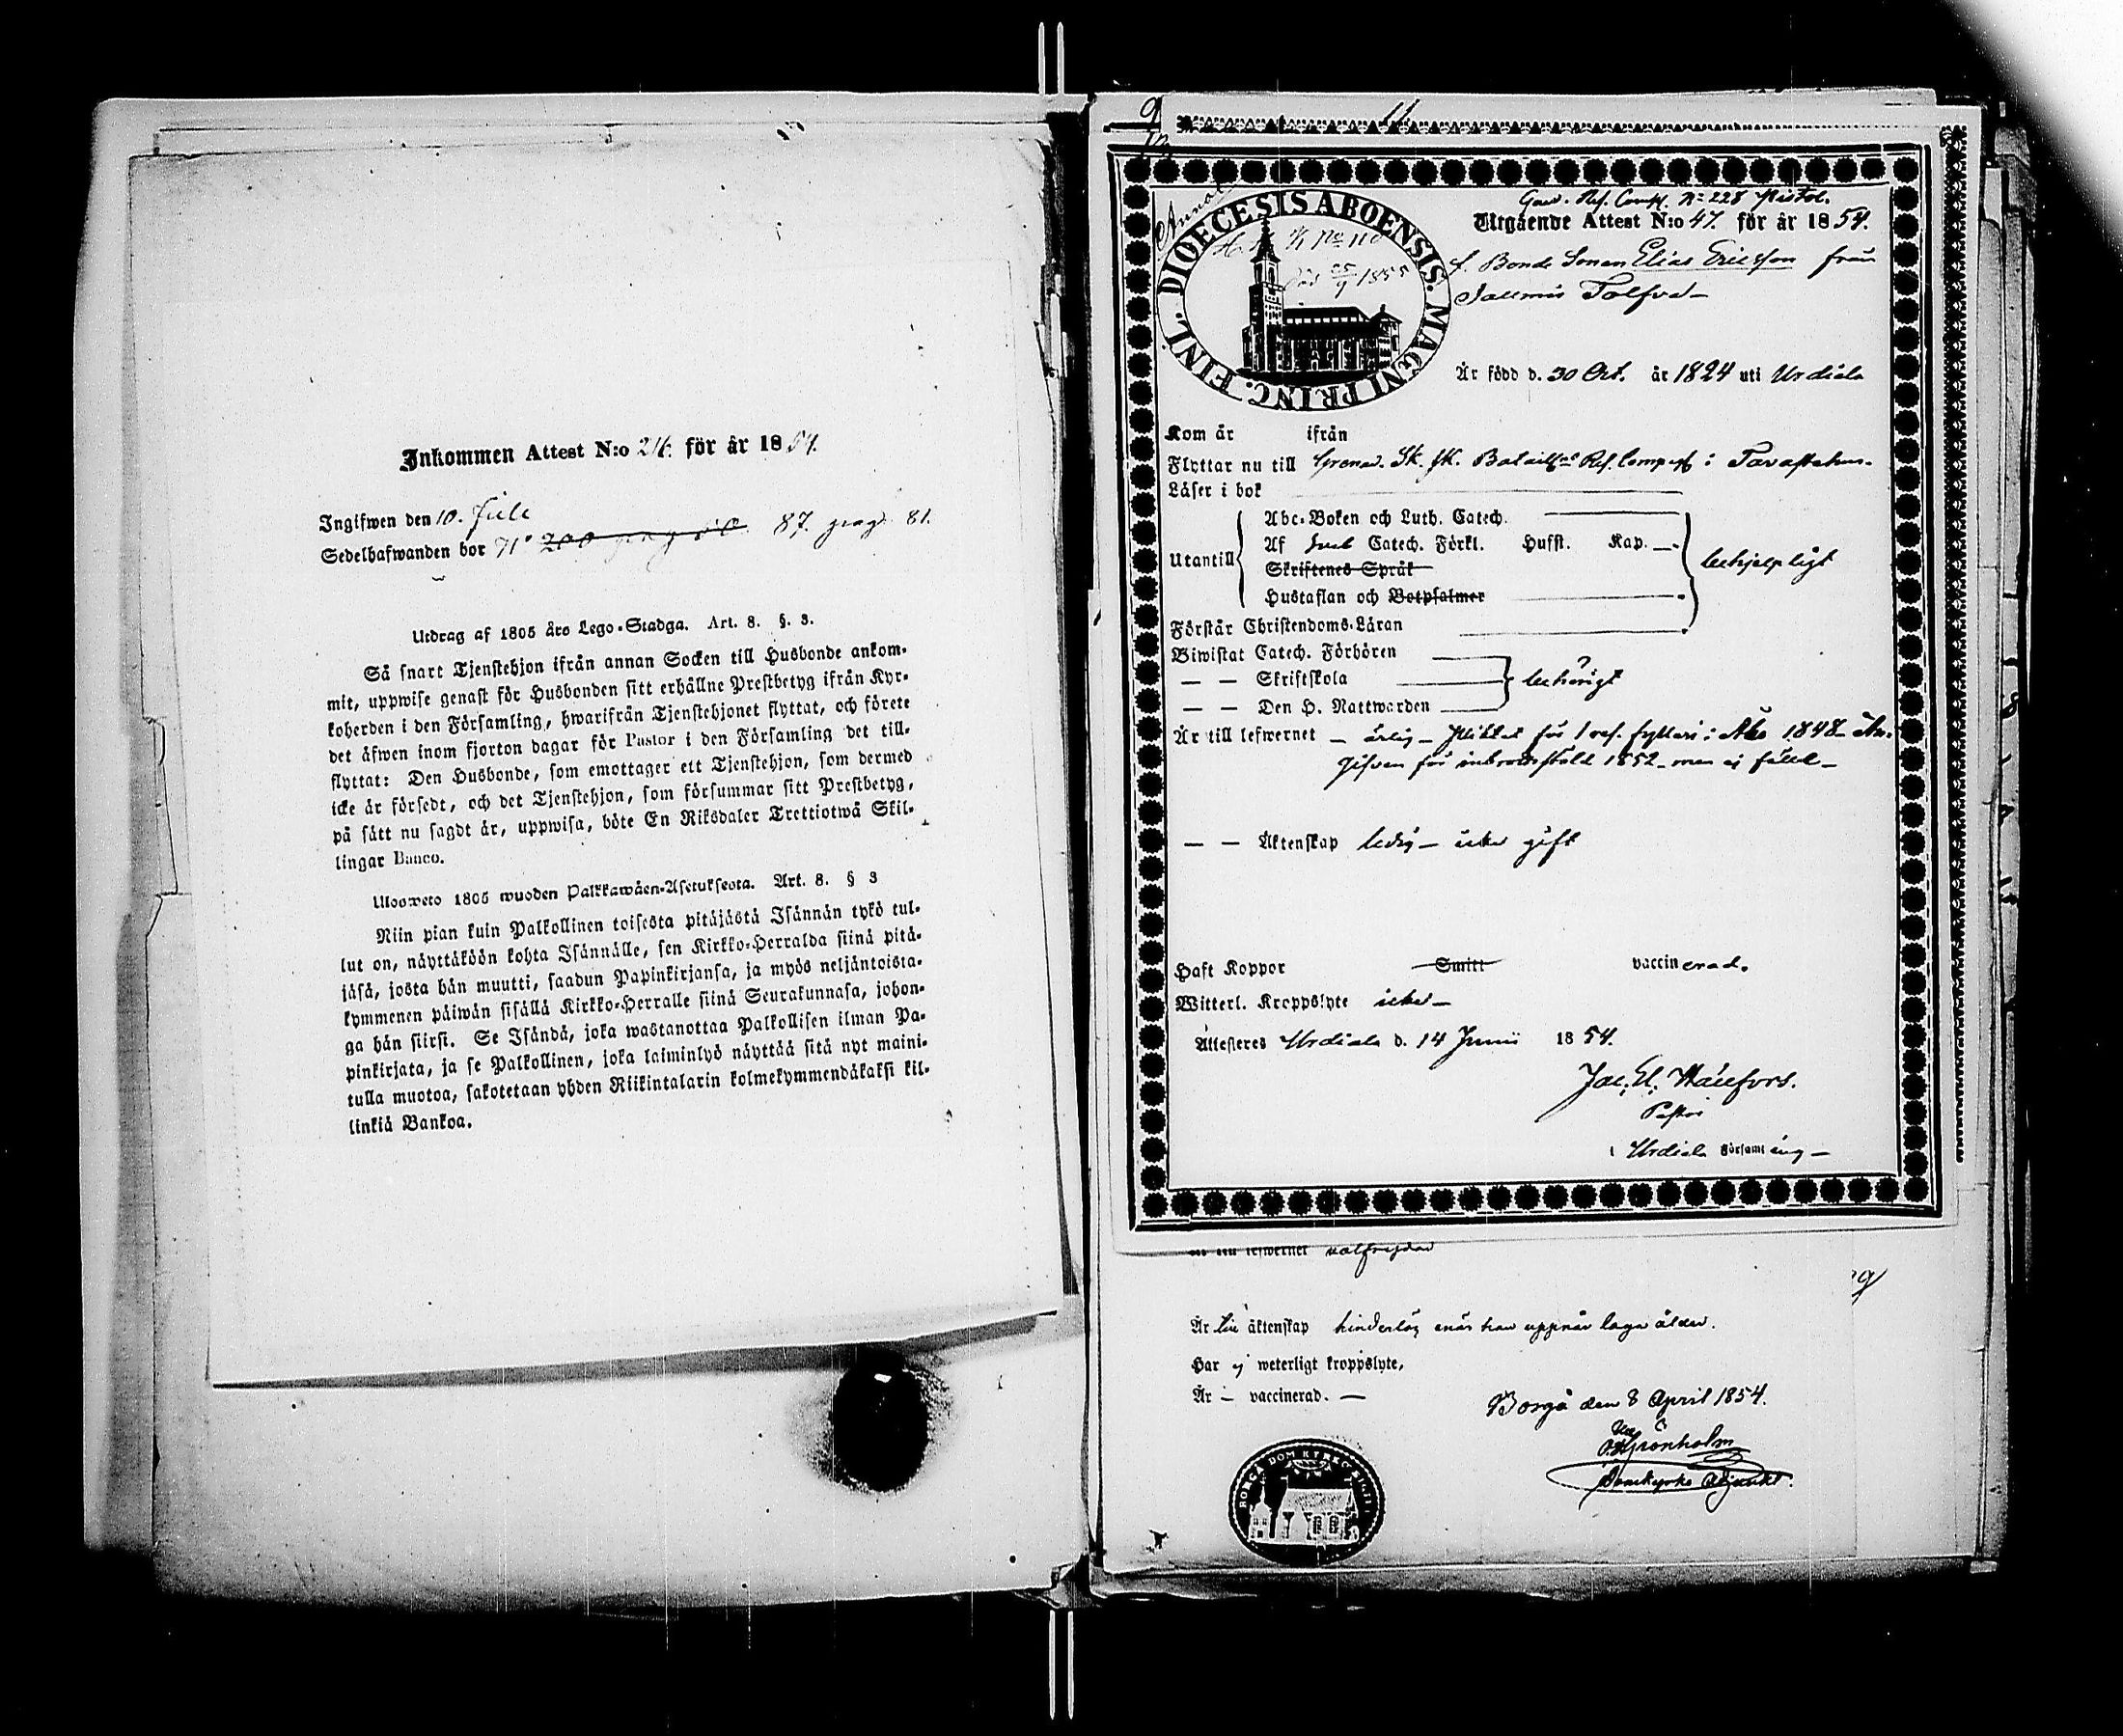 Inkommen Attest N:o 24 för år 1854.
Ingifwen den 10. Juli
Sedelhafwanden bor N° 200 87. pag. 81.
Utdrag af 1805 års Lego-Stadga. Art. 8. §. 3.
Så snart Tjenstehjon ifrån annan Socken till Husbonde ankom-
mit, uppwise genast för Husbonden sitt erhållne Prestbetyg ifrån Kyr-
koherden i den Församling, hwarifrån Tjenstehjonet flyttat, och förete
det äfwen inom fjorton dagar för Pastor i den Församling det till-
flyttat: Den Husbonde, som emottager ett Tjenstehjon, som dermed
icke är försedt, och det Tjenstehjon, som försummar sitt Prestbetyg,
på sätt nu sagdt är, uppwisa, böte En Riksdaler Trettiotwå Skil-
lingar Banco.
Ulosweto 1805 wuoden Palkkawäen-Asetuksesta. Art. 8. § 3
Niin pian kuin Palkollinen toisesta pitäjästä Isännän tykö tul-
lut on, näyttäköön kohta Isännälle, sen Kirkko-Herralda siinä pitä-
jäsä, josta hän muutti, saadun Papinkirjansa, ja myös neljäntoista-
kymmenen päiwän sisällä Kirkko-Herralle siinä Seurakunnasa, johon-
ga hän siirsi. Se Isändä, joka wastanottaa Palkollisen ilman Pa-
pinkirjata, ja se Palkollinen, joka laiminlyö näyttää sitä nyt maini-
tulla muotoa, sakotetaan yhden Riikintalarin kolmekymmendäkaksi kil-
linkiä Bankoa.
11
DIOECESIS ABOENSIS. MAGNI PRINC. FINL.
Gren. Ref. Comp. N° 228 Pistol.
Utgående Attest N:o 47. för år 1854.
f. Bonde Sonen Elias Ericsson från
Är född d. 30 Oct. år 1824 uti Urdiala
Kom år ifrån
Flyttar nu till Grenad. Sk. fk. Bataill:s Ref. Comp. i Tavastehus.
Läser i bok
Utantill Abc-Boken och Luth. Catech.
Af Catech. Förkl. Husst. Kap. behjelpligt
Skriftenes Språk
Hustaflan och Botpsalmer
Förstår Christendoms-Läran
Biwistat Catech. Förhören
— — Skriftskola behörigt
— — Den H. Nattwarden
Är till lefwernet — ärlig — Pliktat för 1 res. fylleri i Åbo 1848 — An-
gifven för inbrottsstöld 1852 — men ej fälld —
— — Äktenskap ledig — icke gift
Haft Koppor Smitt vaccinerad.
Witterl. Kroppslyte icke —
Attesteres Urdiala d. 14 Junii 1854.
Pastor
i Urdiala Församling —
lefwernet välfrejdad
Är till äktenskap hinderlös enär han uppnår laga ålder.
Har ej weterligt kroppslyte,
Är — vaccinerad. —
Borgå den 8 April 1854.
Grönholm
Domkyrko Adjunkt.